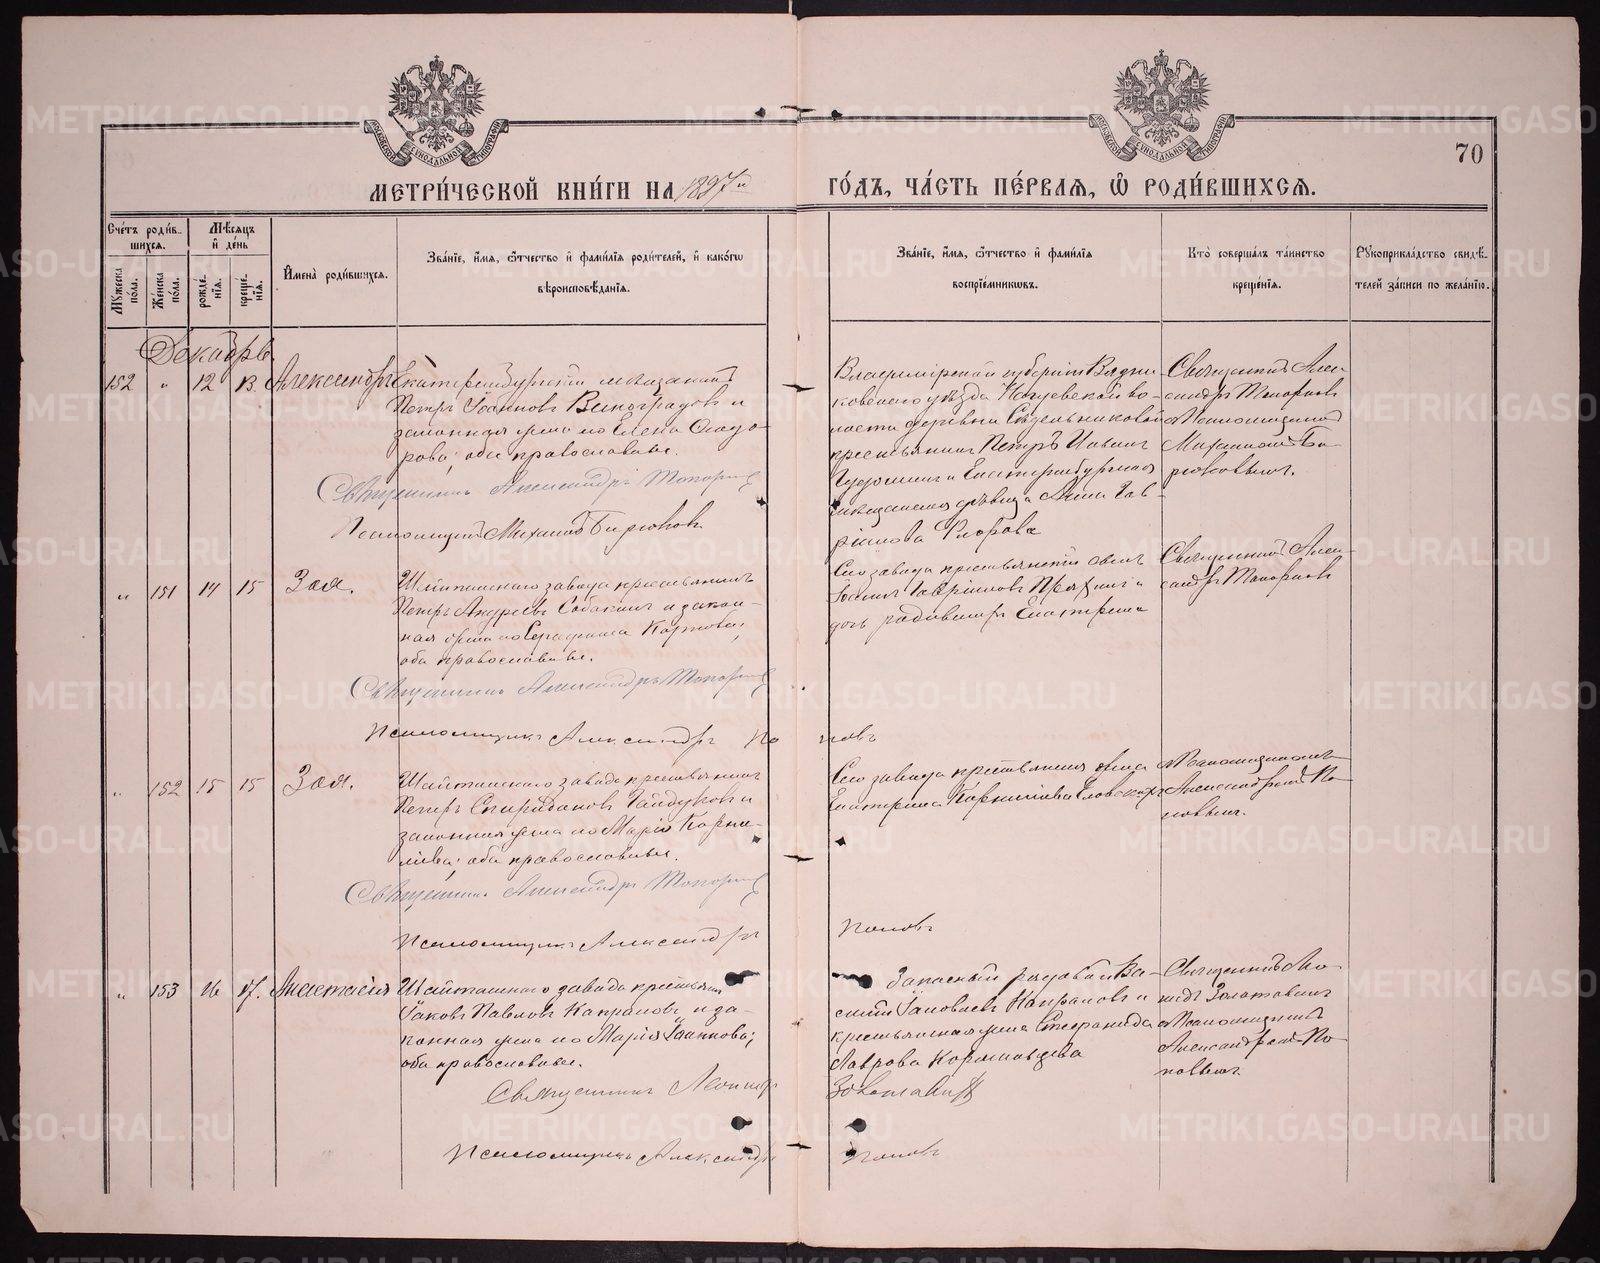 70
МЕТРИЧЕСКОЙ КНИГИ НА 1897й ГОДЪ, ЧАСТЬ ПЕРВАЯ, Ѡ РОДИВШИХСЯ.
Счетъ родив-
шихся.
Мужеска
пола.
Женска
пола.
Мѣсяцъ
и день
рожде-
нія.
креще-
нія.
Имена родившихся.
Званіе, имя, ѿчество и фамилія родителей, и какогѡ
вѣроисповѣданія.
Званіе, имя, ѿчество и фамилія
воспріемникѡвъ.
Кто совершалъ таинство
крещенія.
Рукоприкладство свидѣ-
телей записи по желанію.
Декабрь.
152 " 12 13. Александръ
Екатеринбургскій мѣщанинъ
Петръ Іоанновъ Виноградовъ и
законная жена его Елена Ѳеодо-
рова; оба православные.
Священникъ Александръ Топорковъ
Псаломщикъ Михаилъ Бирюковъ
Владимірской губерніи Вязни-
ковскаго уѣзда
волости деревни
крестьянинъ Петръ
и Екатеринбургская
мѣщанская дѣвица Анна Гав-
ріилова
Священникъ Алек-
сандръ Топорковъ
съ Псаломщикомъ
Михаиломъ Би-
рюковымъ.
" 151 14 15 Зоя.
Шайтанскаго завода крестьянинъ
Петръ Андреевъ Собакинъ и закон-
ная жена его Серафима Карпова;
оба православные.
Священникъ Александръ Топорковъ
Псаломщикъ Александръ Поповъ
Сего завода крестьянскій сынъ
Іоаннъ Гавріиловъ и
дочь Екатерина
Священникъ Алек-
сандръ Топорковъ
" 152 15 15 Зоя.
Шайтанскаго завода крестьянинъ
Петръ Спиридоновъ Гайдуковъ и
законная жена его Марія Корни-
лиева; оба православные.
Священникъ Александръ Топорковъ
Псаломщикъ Александръ Поповъ
Сего завода крестьянская жена
Екатерина Корниліева
съ Псаломщикомъ
Александромъ По-
повымъ.
" 153 16 17. Анастасія
Шайтанскаго завода крестьянинъ
Іаковъ Павловъ Капраловъ и за-
конная жена его Марія Іоаннова;
оба православные.
Священникъ Леонидъ Золотавинъ
Псаломщикъ Александръ Поповъ
Запасный рядовой Ва-
силій Іаковлевъ Капраловъ и
крестьянская жена Стефанида
Лаврова
Священникъ Лео-
нидъ Золотавинъ
съ Псаломщикомъ
Александромъ По-
повымъ.
METRIKI.GASO-URAL.RU